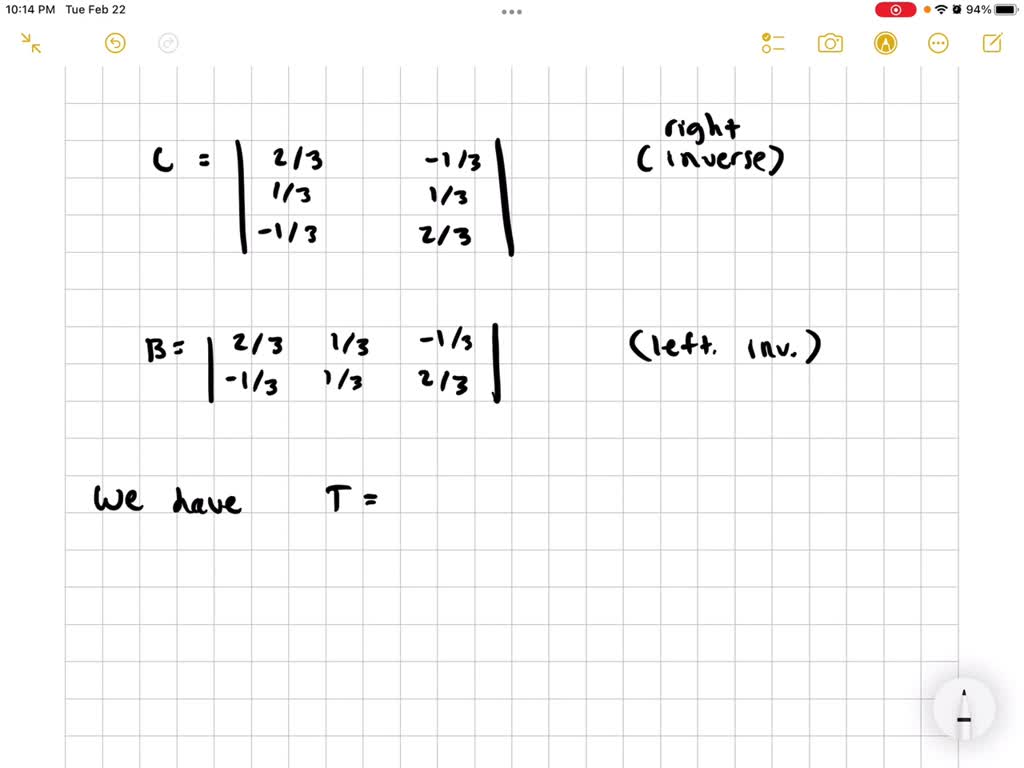 10:14 PM Tue Feb 22
94%
right
C = | 2/3 -1/3 | (inverse)
1/3 1/3
-1/3 2/3
B = | 2/3 1/3 -1/3 | (left. inv.)
-1/3 1/3 2/3
We have T =